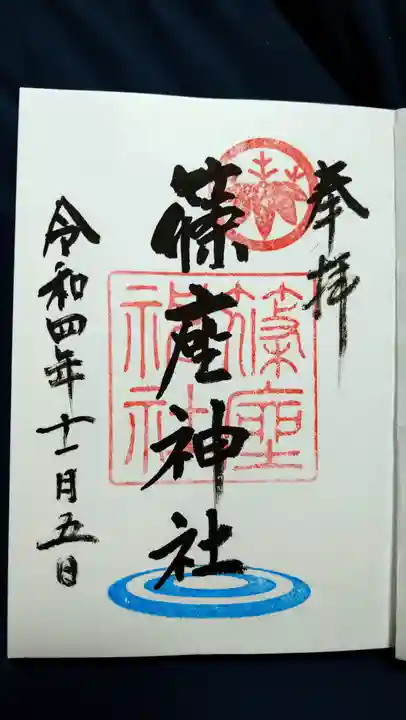 奉拝
篠座神社
篠座
神社
令和四年十一月五日